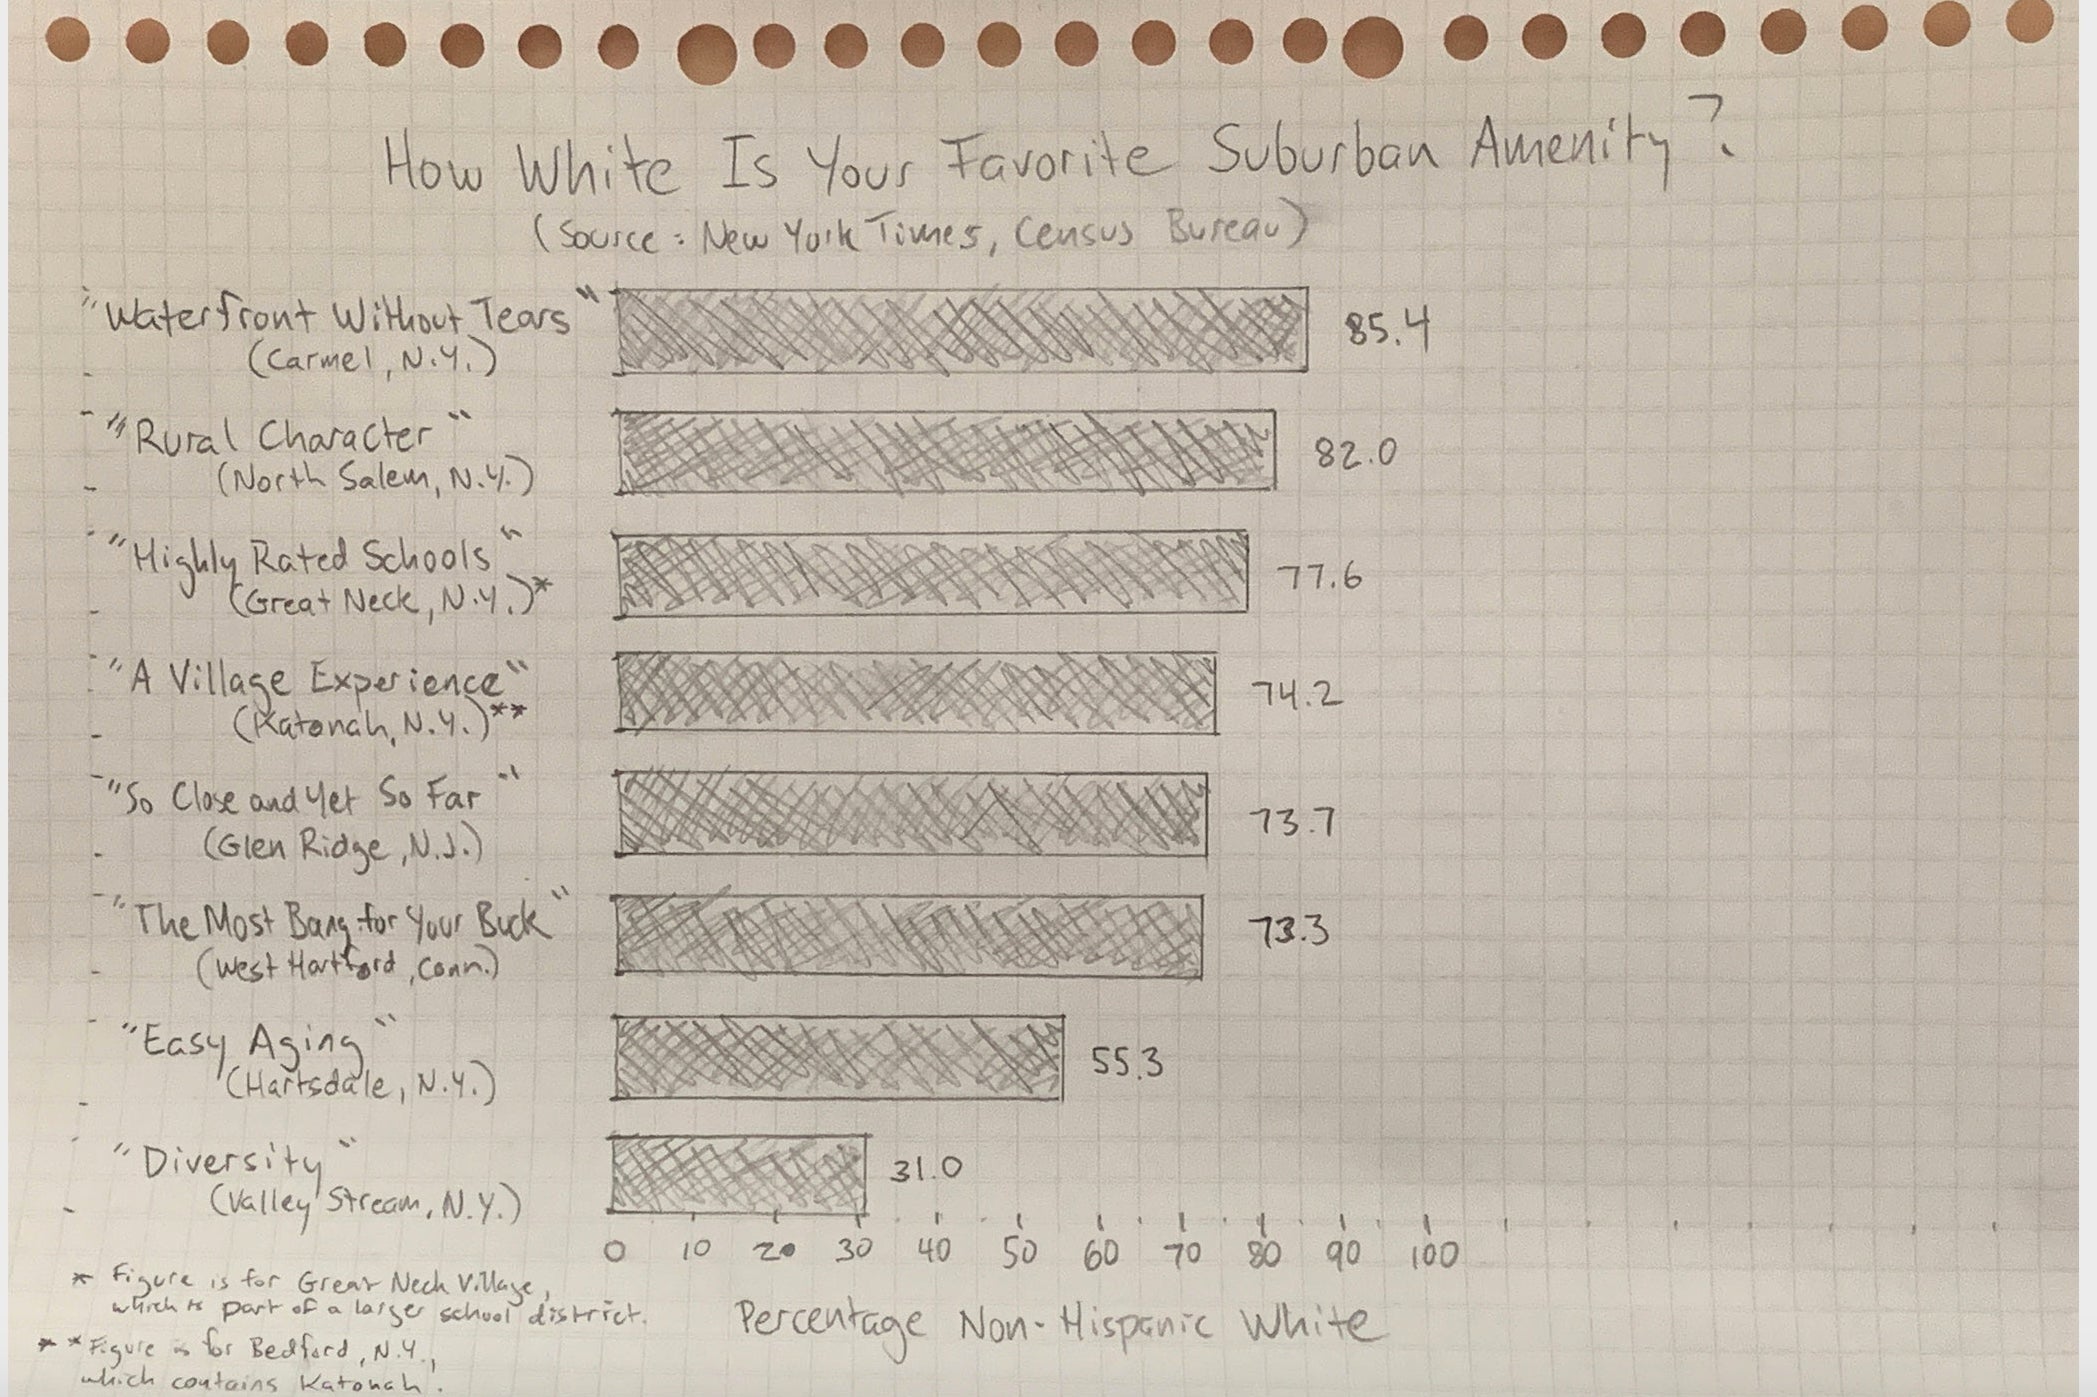 How White Is Your Favorite Suburban Amenity?
(Source: New York Times, Census Bureau)
"Waterfront Without Tears"
(Carmel, N.Y.)
85.4
"Rural Character"
(North Salem, N.Y.)
82.0
"Highly Rated Schools"
(Great Neck, N.Y.)*
77.6
"A Village Experience"
(Katonah, N.Y.)**
74.2
"So Close and Yet So Far"
(Glen Ridge, N.J.)
73.7
"The Most Bang for Your Buck"
(West Hartford, Conn.)
73.3
"Easy Aging"
(Hartsdale, N.Y.)
55.3
"Diversity"
(Valley Stream, N.Y.)
31.0
0 10 20 30 40 50 60 70 80 90 100
Percentage Non-Hispanic White
* Figure is for Great Neck Village,
which is part of a larger school district.
** Figure is for Bedford, N.Y.,
which contains Katonah.